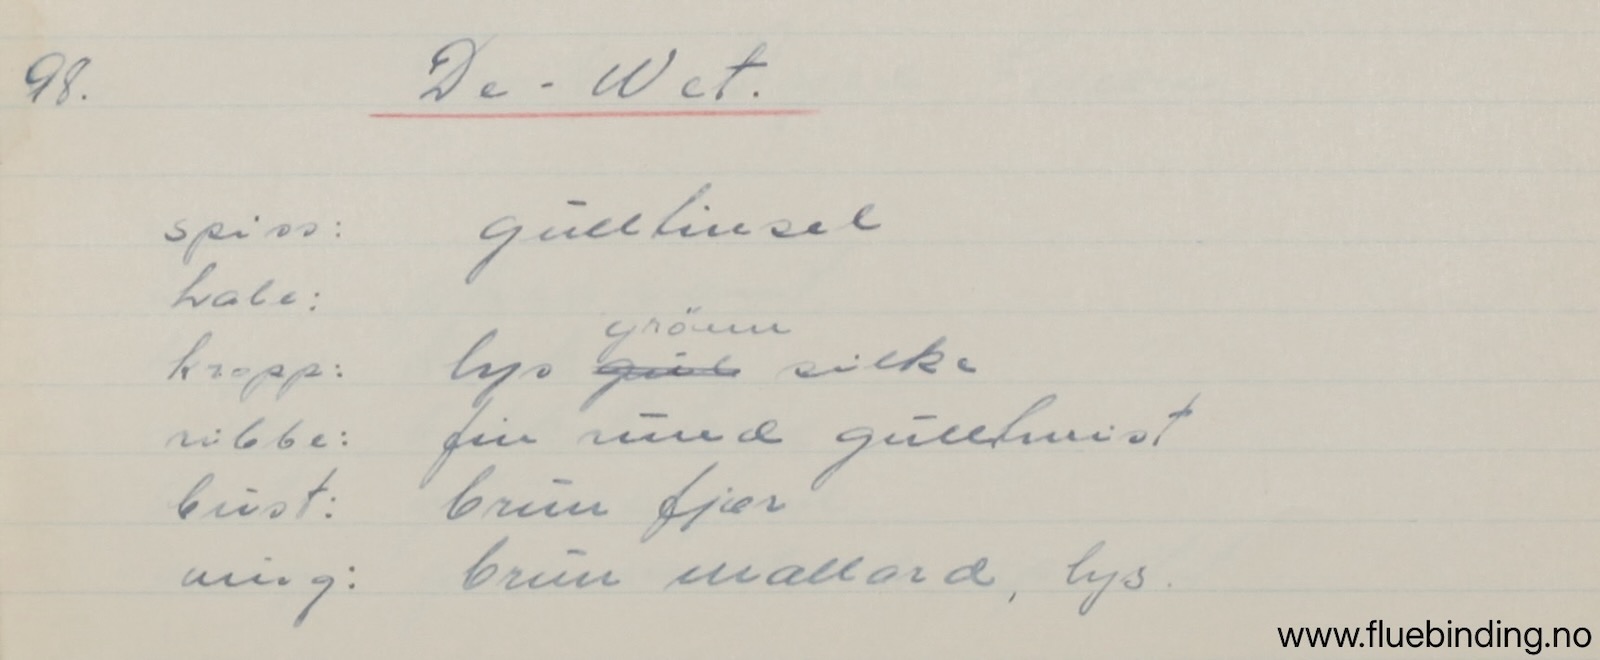 98. De-Wet.
spiss: gulltinsel
hale:
grönn
kropp: lys gul silke
ribbe: fin rund gulltwist
bust: brun fjær
ving: brun mallard, lys.
www.fluebinding.no